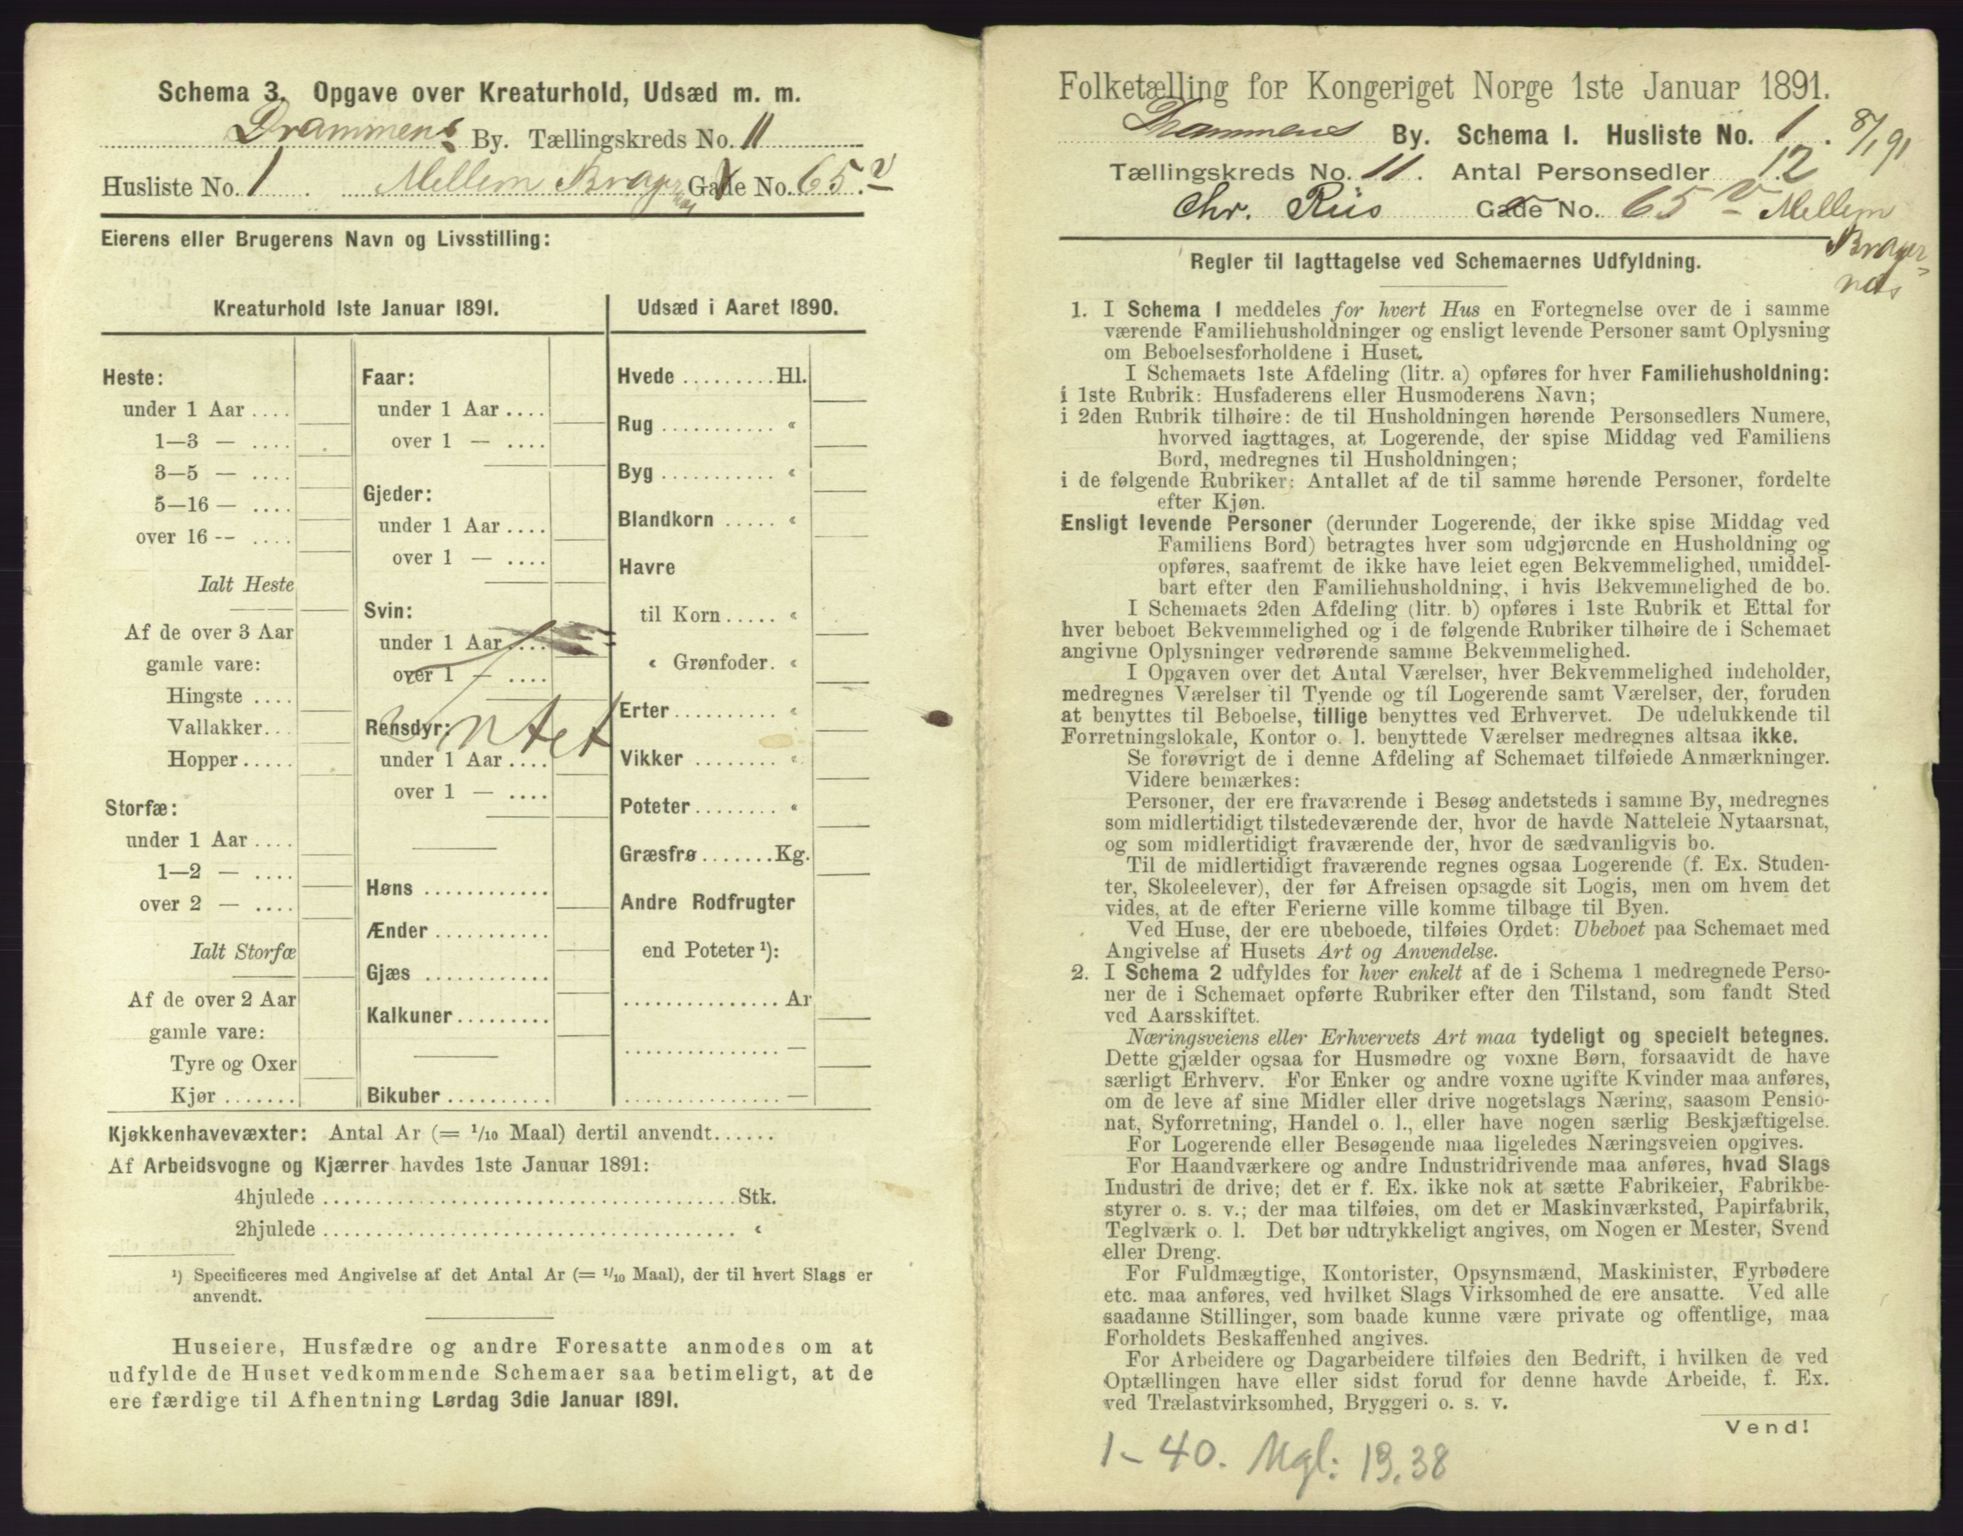 Schema 3. Opgave over Kreaturhold, Udsæd m. m.
Drammens By. Tællingskreds No. 11
Husliste No. 1. Mellem Bragernæs Gade No. 65 v
Eierens eller Brugerens Navn og Livsstilling:
Kreaturhold 1ste Januar 1891.
Heste:
under 1 Aar ....
1—3 — ....
3—5 — ....
5—16 — ....
over 16 -- ....
Ialt Heste
Af de over 3 Aar
gamle vare:
Hingste ....
Vallakker...
Hopper.....
Storfæ:
under 1 Aar ....
1—2 — ....
over 2 — ....
Ialt Storfæ
Af de over 2 Aar
gamle vare:
Tyre og Oxer
Kjør .......
Faar:
under 1 Aar ....
over 1 — ....
Gjeder:
under 1 Aar ....
over 1 — ....
Svin:
under 1 Aar ....
over 1 — ....
Rensdyr:
Intet
under 1 Aar ....
over 1 — ....
Høns ............
Ænder ...........
Gjæs ............
Kalkuner.........
Bikuber ..........
Udsæd i Aaret 1890.
Hvede .........Hl.
Rug ........... «
Byg ........... «
Blandkorn ..... «
Havre
til Korn ..... «
« Grønfoder. «
Erter.......... «
Vikker ........ «
Poteter ....... «
Græsfrø.......Kg.
Andre Rodfrugter
end Poteter ¹):
...............Ar
...............—
...............—
Kjøkkenhavevæxter: Antal Ar (= 1/10 Maal) dertil anvendt......
Af Arbeidsvogne og Kjærrer havdes 1ste Januar 1891:
4hjulede ......................................Stk.
2hjulede ...................................... «
¹) Specificeres med Angivelse af det Antal Ar (= 1/10 Maal), der til hvert Slags er
anvendt.
Huseiere, Husfædre og andre Foresatte anmodes om at
udfylde de Huset vedkommende Schemaer saa betimeligt, at de
ere færdige til Afhentning Lørdag 3die Januar 1891.
Folketælling for Kongeriget Norge 1ste Januar 1891.
Drammens By. Schema I. Husliste No. 1. 8/1 91
Tællingskreds No. 11. Antal Personsedler 12
Chr. Riis Gade No. 65 v Mellem
Brager-
næs
Regler til Iagttagelse ved Schemaernes Udfyldning.
1. I Schema 1 meddeles for hvert Hus en Fortegnelse over de i samme
værende Familiehusholdninger og ensligt levende Personer samt Oplysning
om Beboelsesforholdene i Huset.
I Schemaets 1ste Afdeling (litr. a) opføres for hver Familiehusholdning:
i 1ste Rubrik: Husfaderens eller Husmoderens Navn;
i 2den Rubrik tilhøire: de til Husholdningen hørende Personsedlers Numere,
hvorved iagttages, at Logerende, der spise Middag ved Familiens
Bord, medregnes til Husholdningen;
i de følgende Rubriker: Antallet af de til samme hørende Personer, fordelte
efter Kjøn.
Ensligt levende Personer (derunder Logerende, der ikke spise Middag ved
Familiens Bord) betragtes hver som udgjørende en Husholdning og
opføres, saafremt de ikke have leiet egen Bekvemmelighed, umiddel-
bart efter den Familiehusholdning, i hvis Bekvemmelighed de bo.
I Schemaets 2den Afdeling (litr. b) opføres i 1ste Rubrik et Ettal for
hver beboet Bekvemmelighed og i de følgende Rubriker tilhøire de i Schemaet
angivne Oplysninger vedrørende samme Bekvemmelighed.
I Opgaven over det Antal Værelser, hver Bekvemmelighed indeholder,
medregnes Værelser til Tyende og til Logerende samt Værelser, der, foruden
at benyttes til Beboelse, tillige benyttes ved Erhvervet. De udelukkende til
Forretningslokale, Kontor o. l. benyttede Værelser medregnes altsaa ikke.
Se forøvrigt de i denne Afdeling af Schemaet tilføiede Anmærkninger.
Videre bemærkes:
Personer, der ere fraværende i Besøg andetsteds i samme By, medregnes
som midlertidigt tilstedeværende der, hvor de havde Natteleie Nytaarsnat,
og som midlertidigt fraværende der, hvor de sædvanligvis bo.
Til de midlertidigt fraværende regnes ogsaa Logerende (f. Ex. Studen-
ter, Skoleelever), der før Afreisen opsagde sit Logis, men om hvem det
vides, at de efter Ferierne ville komme tilbage til Byen.
Ved Huse, der ere ubeboede, tilføies Ordet: Ubeboet paa Schemaet med
Angivelse af Husets Art og Anvendelse.
2. I Schema 2 udfyldes for hver enkelt af de i Schema 1 medregnede Perso-
ner de i Schemaet opførte Rubriker efter den Tilstand, som fandt Sted
ved Aarsskiftet.
Næringsveiens eller Erhvervets Art maa tydeligt og specielt betegnes.
Dette gjælder ogsaa for Husmødre og voxne Børn, forsaavidt de have
særligt Erhverv. For Enker og andre voxne ugifte Kvinder maa anføres,
om de leve af sine Midler eller drive nogetslags Næring, saasom Pensio-
nat, Syforretning, Handel o. l., eller have nogen særlig Beskjæftigelse.
For Logerende eller Besøgende maa ligeledes Næringsveien opgives.
For Haandværkere og andre Industridrivende maa anføres, hvad Slags
Industri de drive; det er f. Ex. ikke nok at sætte Fabrikeier, Fabrikbe-
styrer o. s. v.; der maa tilføies, om det er Maskinværksted, Papirfabrik,
Teglværk o. l. Det bør udtrykkeligt angives, om Nogen er Mester, Svend
eller Dreng.
For Fuldmægtige, Kontorister, Opsynsmænd, Maskinister, Fyrbødere
etc. maa anføres, ved hvilket Slags Virksomhed de ere ansatte. Ved alle
saadanne Stillinger, som baade kunne være private og offentlige, maa
Forholdets Beskaffenhed angives.
For Arbeidere og Dagarbeidere tilføies den Bedrift, i hvilken de ved
Optællingen have eller sidst forud for denne havde Arbeide, f. Ex.
ved Trælastvirksomhed, Bryggeri o. s. v.
Vend!
1-40. Mgl: 13, 38